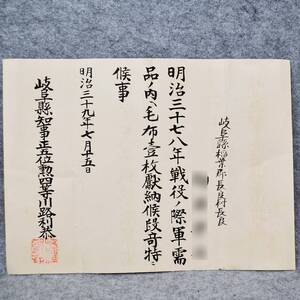 岐阜縣稲葉郡長良村長良
明治三十七八年戦役ノ際軍需
品ノ内ヘ毛布壹枚獻納候段奇特ニ
候事
明治三十九年七月廿五日
岐阜縣知事正五位勲四等川路利恭